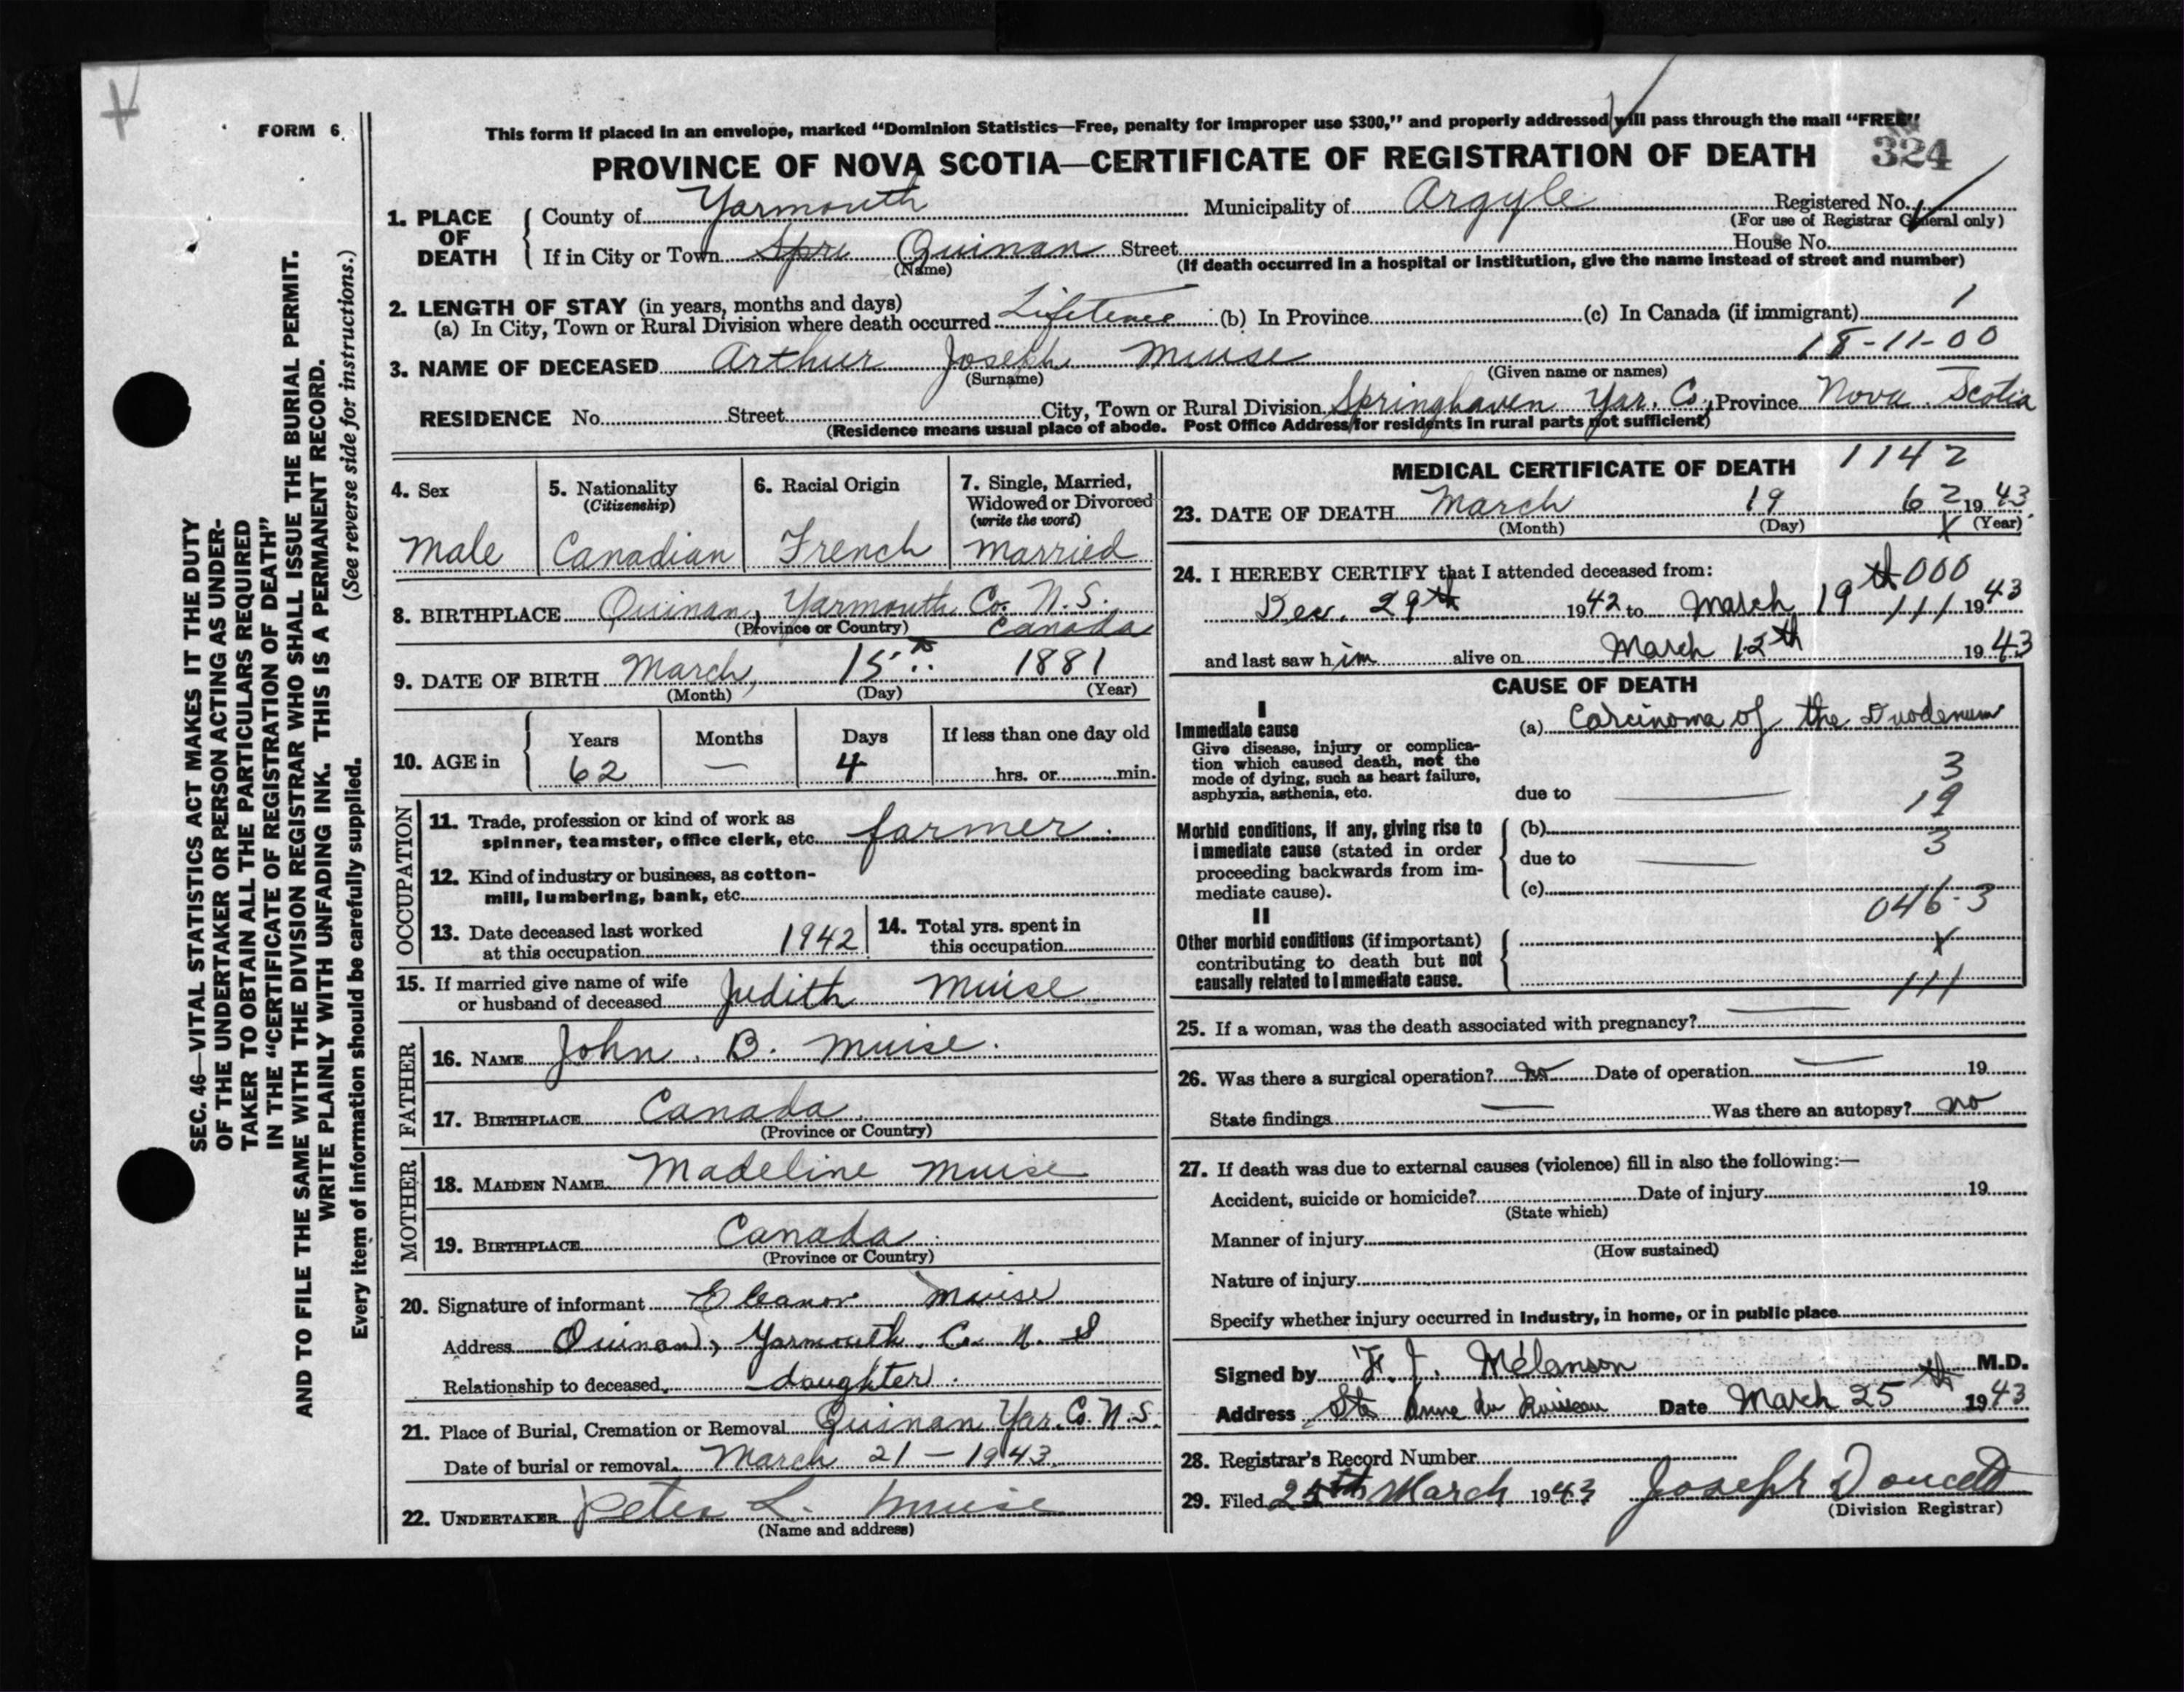 FORM 6.
This form if placed in an envelope, marked “Dominion Statistics—Free, penalty for improper use $300,” and properly addressed will pass through the mail “FREE”
PROVINCE OF NOVA SCOTIA—CERTIFICATE OF REGISTRATION OF DEATH 324
1. PLACE OF DEATH
County of Yarmouth Municipality of Argyle Registered No.
(For use of Registrar General only)
If in City or Town Spri Quinan Street House No.
(Name) (If death occurred in a hospital or institution, give the name instead of street and number)
2. LENGTH OF STAY (in years, months and days)
(a) In City, Town or Rural Division where death occurred Lifetime (b) In Province (c) In Canada (if immigrant) 1
18-11-00
3. NAME OF DECEASED Arthur Joseph Muise
(Surname) (Given name or names)
RESIDENCE No. Street City, Town or Rural Division Springhaven Yar. Co., Province Nova Scotia
(Residence means usual place of abode. Post Office Address for residents in rural parts not sufficient)
4. Sex
Male
5. Nationality
(Citizenship)
Canadian
6. Racial Origin
French
7. Single, Married,
Widowed or Divorced
(write the word)
Married
8. BIRTHPLACE Quinan, Yarmouth Co. N.S.
(Province or Country) Canada
9. DATE OF BIRTH March, 15th 1881
(Month) (Day) (Year)
10. AGE in
Years Months Days If less than one day old
62 — 4 hrs. or min.
OCCUPATION
11. Trade, profession or kind of work as
spinner, teamster, office clerk, etc. farmer.
12. Kind of industry or business, as cotton-
mill, lumbering, bank, etc.
13. Date deceased last worked
at this occupation 1942
14. Total yrs. spent in
this occupation
15. If married give name of wife
or husband of deceased Judith Muise
FATHER
16. NAME John B. Muise.
17. BIRTHPLACE Canada
(Province or Country)
MOTHER
18. MAIDEN NAME Madeline Muise
19. BIRTHPLACE Canada
(Province or Country)
20. Signature of informant Eleanor Muise
Address Quinan, Yarmouth Co. N. S
Relationship to deceased daughter.
21. Place of Burial, Cremation or Removal Quinan Yar. Co. N.S.
Date of burial or removal March 21 – 1943.
22. UNDERTAKER Peter L. Muise
(Name and address)
MEDICAL CERTIFICATE OF DEATH 1142
23. DATE OF DEATH March 19 62 1943.
(Month) (Day) X (Year)
24. I HEREBY CERTIFY that I attended deceased from: 000
Dec. 29th 1942 to March 19th 111 1943
and last saw him alive on March 12th 1943
CAUSE OF DEATH
I
Immediate cause
Give disease, injury or complica-
tion which caused death, not the
mode of dying, such as heart failure,
asphyxia, asthenia, etc.
(a) Carcinoma of the Duodenum
3
due to —
19
Morbid conditions, if any, giving rise to
immediate cause (stated in order
proceeding backwards from im-
mediate cause).
(b)
3
due to —
(c)
046-3
II
Other morbid conditions (if important)
contributing to death but not
causally related to immediate cause.
X
111
25. If a woman, was the death associated with pregnancy? —
26. Was there a surgical operation? no Date of operation — 19
State findings — Was there an autopsy? no
27. If death was due to external causes (violence) fill in also the following:—
Accident, suicide or homicide? Date of injury 19
(State which)
Manner of injury
(How sustained)
Nature of injury
Specify whether injury occurred in industry, in home, or in public place
Signed by F. J. Mélanson M.D.
Address Ste Anne du Ruisseau Date March 25th 1943
28. Registrar’s Record Number
29. Filed 25th March 1943 Joseph Doucett
(Division Registrar)
SEC. 46—VITAL STATISTICS ACT MAKES IT THE DUTY
OF THE UNDERTAKER OR PERSON ACTING AS UNDER-
TAKER TO OBTAIN ALL THE PARTICULARS REQUIRED
IN THE “CERTIFICATE OF REGISTRATION OF DEATH”
AND TO FILE THE SAME WITH THE DIVISION REGISTRAR WHO SHALL ISSUE THE BURIAL PERMIT.
WRITE PLAINLY WITH UNFADING INK. THIS IS A PERMANENT RECORD.
(See reverse side for instructions.)
Every item of information should be carefully supplied.